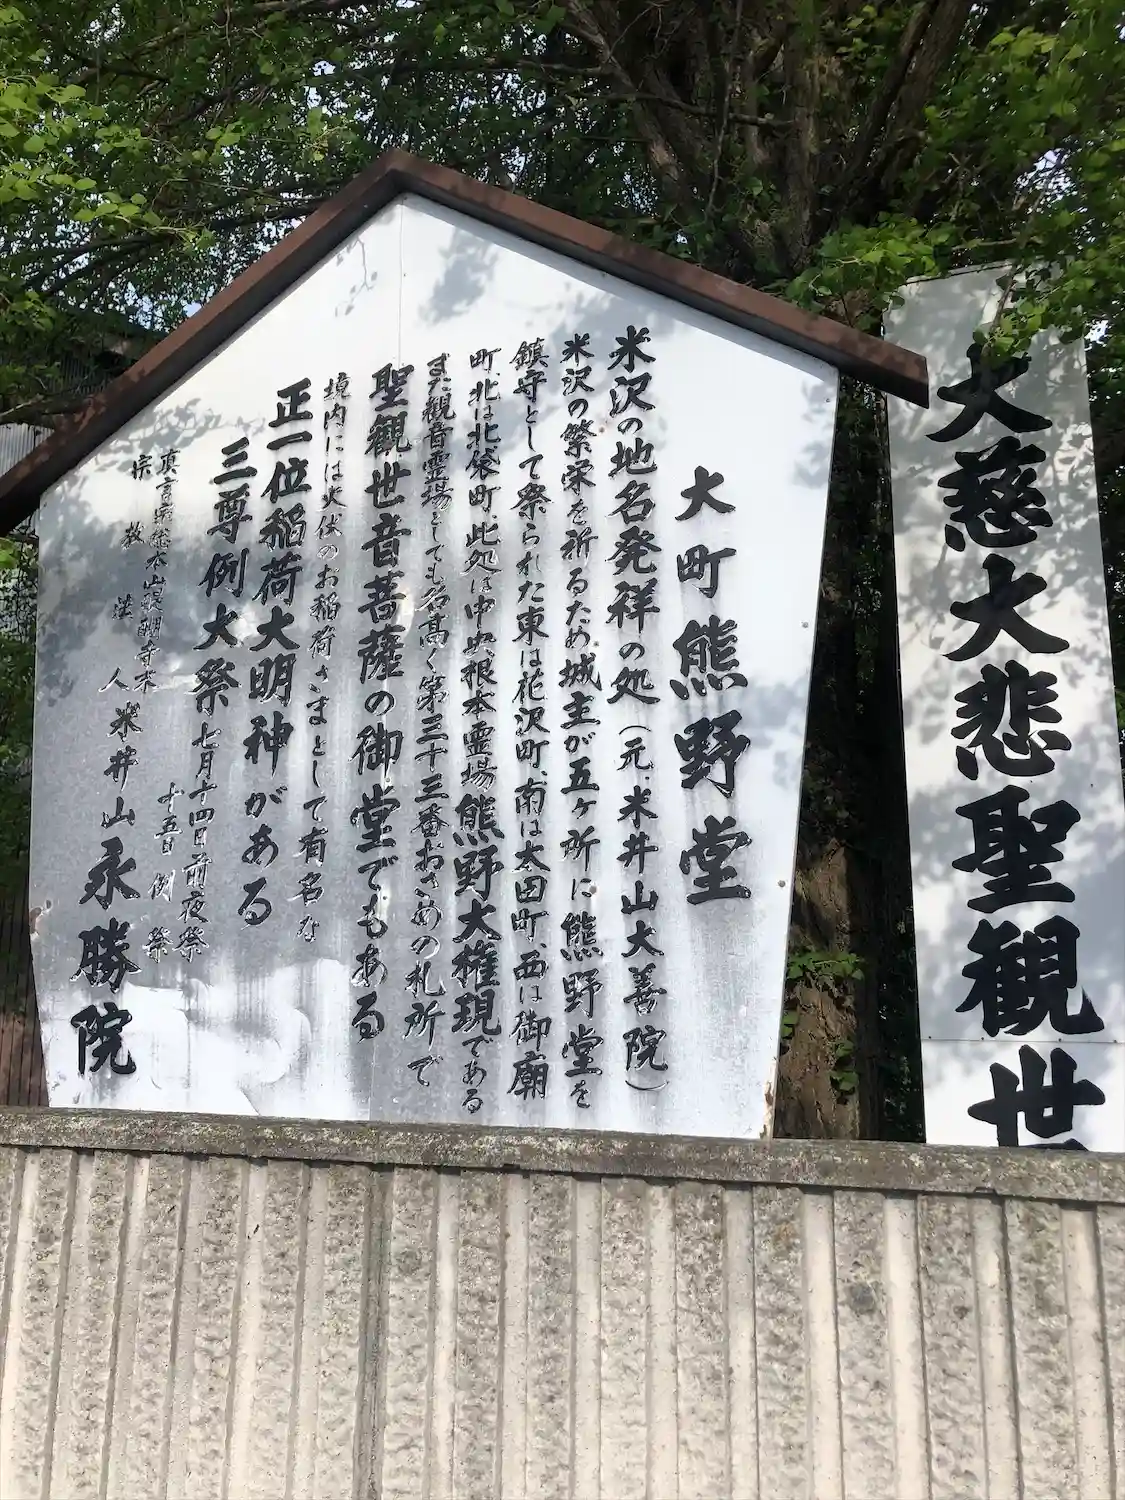 大町熊野堂
米沢の地名発祥の処（元、米井山大善院）
米沢の繁栄を祈るため城主が五ヶ所に熊野堂を
鎮守として祭られた東は花沢町、南は太田町、西は御廟
町、北は北袋町、此処は中央根本霊場熊野大権現である
また観音霊場としても名高く第三十三番おさめの札所で
聖観世音菩薩の御堂でもある
境内には火伏のお稲荷さまとして有名な
正一位稲荷大明神がある
三尊例大祭 七月十四日前夜祭
十五日例祭
真言宗総本山醍醐寺末
宗教法人米井山永勝院
大慈大悲聖観世